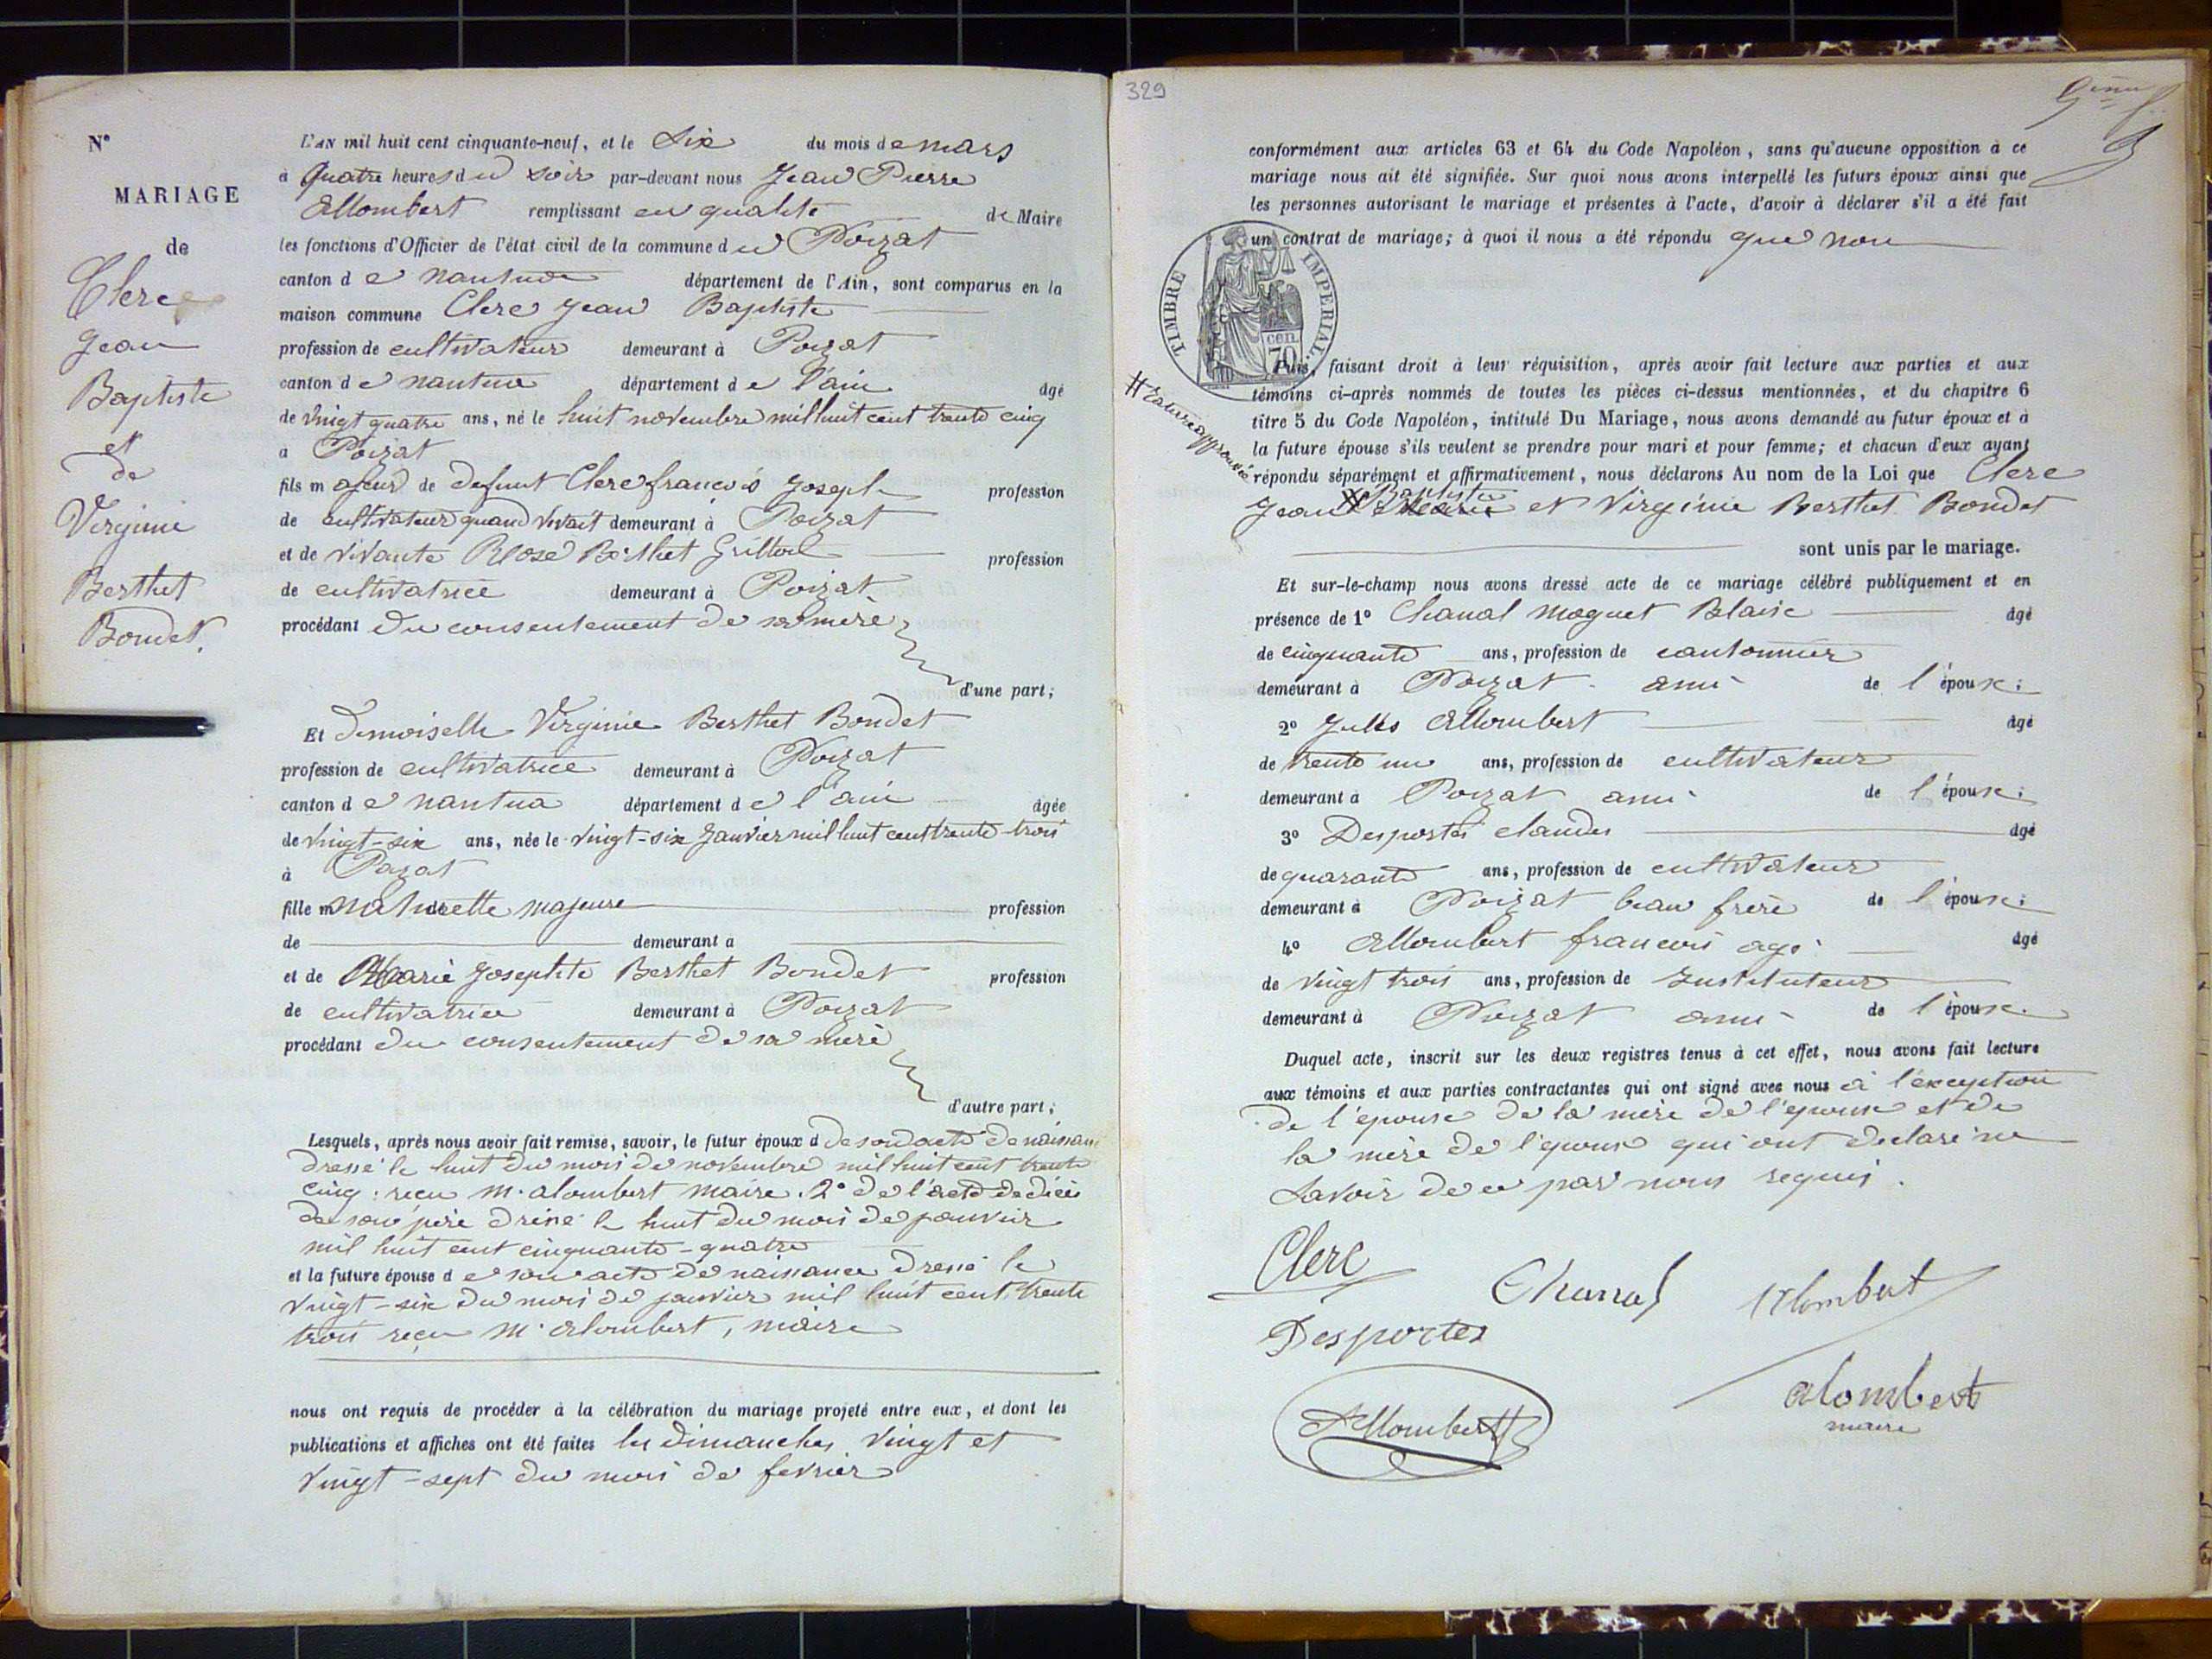 N°
MARIAGE
de
Clerc
Jean
Baptiste
et
de
Virginie
Berthet
Bondet.
L'AN mil huit cent cinquante-neuf, et le six du mois de mars
à quatre heures du soir par-devant nous Jean Pierre
Allombert remplissant en qualité de Maire
les fonctions d'Officier de l'état civil de la commune du Poizat
canton de nantua département de l'Ain, sont comparus en la
maison commune Clerc Jean Baptiste
profession de cultivateur demeurant à Poizat
canton de nantua département de l'ain âgé
de vingt quatre ans, né le huit novembre mil huit cent trente cinq
à Poizat
fils majeur de defunt Clerc francois Joseph profession
de cultivateur quand vivait demeurant à Poizat
et de vivante Rose Berthet Grillod profession
de cultivatrice demeurant à Poizat
procédant du consentement de sa mère
d'une part;
Et Demoiselle Virginie Berthet Bondet
profession de cultivatrice demeurant à Poizat
canton de nantua département de l'ain âgée
de vingt-six ans, née le vingt-six Janvier mil huit cent trente trois
à Pozat
fille naturelle majeure profession
de demeurant a
et de Marie Josephte Berthet Bondet profession
de cultivatrice demeurant à Poizat
procédant du consentement de sa mère
d'autre part;
Lesquels, après nous avoir fait remise, savoir, le futur époux d de son acte de naissance
dressé le huit du mois de novembre mil huit cent trente
cinq: reçu M. alombert maire. 2° de l'acte de décès
de son père dressé le huit du mois de janvier
mil huit cent cinquante-quatre
et la future épouse de son acte de naissance dressé le
vingt-six du mois de janvier mil huit cent trente
trois reçu M. alombert, maire
nous ont requis de procéder à la célébration du mariage projeté entre eux, et dont les
publications et affiches ont été faites les dimanches vingt et
vingt-sept du mois de fevrier
329
conformément aux articles 63 et 64 du Code Napoléon, sans qu'aucune opposition à ce
mariage nous ait été signifiée. Sur quoi nous avons interpellé les futurs époux ainsi que
les personnes autorisant le mariage et présentes à l'acte, d'avoir à déclarer s'il a été fait
un contrat de mariage; à quoi il nous a été répondu que non
TIMBRE IMPERIAL
CEN.
70
Puis, faisant droit à leur réquisition, après avoir fait lecture aux parties et aux
témoins ci-après nommés de toutes les pièces ci-dessus mentionnées, et du chapitre 6
titre 5 du Code Napoléon, intitulé Du Mariage, nous avons demandé au futur époux et à
la future épouse s'ils veulent se prendre pour mari et pour femme; et chacun d'eux ayant
répondu séparément et affirmativement, nous déclarons Au nom de la Loi que Clerc
# rature approuvée
Jean Baptiste et Virginie Berthet Bondet
sont unis par le mariage.
Et sur-le-champ nous avons dressé acte de ce mariage célébré publiquement et en
présence de 1° Chanal Moguet Blaise âgé
de cinquante ans, profession de cantonnier
demeurant à Poizat ami de l'épouse;
2° Jules Allombert âgé
de trente un ans, profession de cultivateur
demeurant à Poizat ami de l'épouse;
3° Desportes claudes âgé
de quarante ans, profession de cultivateur
demeurant à Poizat beau frère de l'épouse;
4° Allombert francois agé âgé
de vingt trois ans, profession de Instituteur
demeurant à Poizat ami de l'épouse.
Duquel acte, inscrit sur les deux registres tenus à cet effet, nous avons fait lecture
aux témoins et aux parties contractantes qui ont signé avec nous à l'exception
de l'épouse de la mère de l'épouse et de
la mère de l'époux qui ont déclaré ne
savoir de ce par nous requis.
Clerc
Chanal
Alombert
Desportes
Allombert
alombert
maire